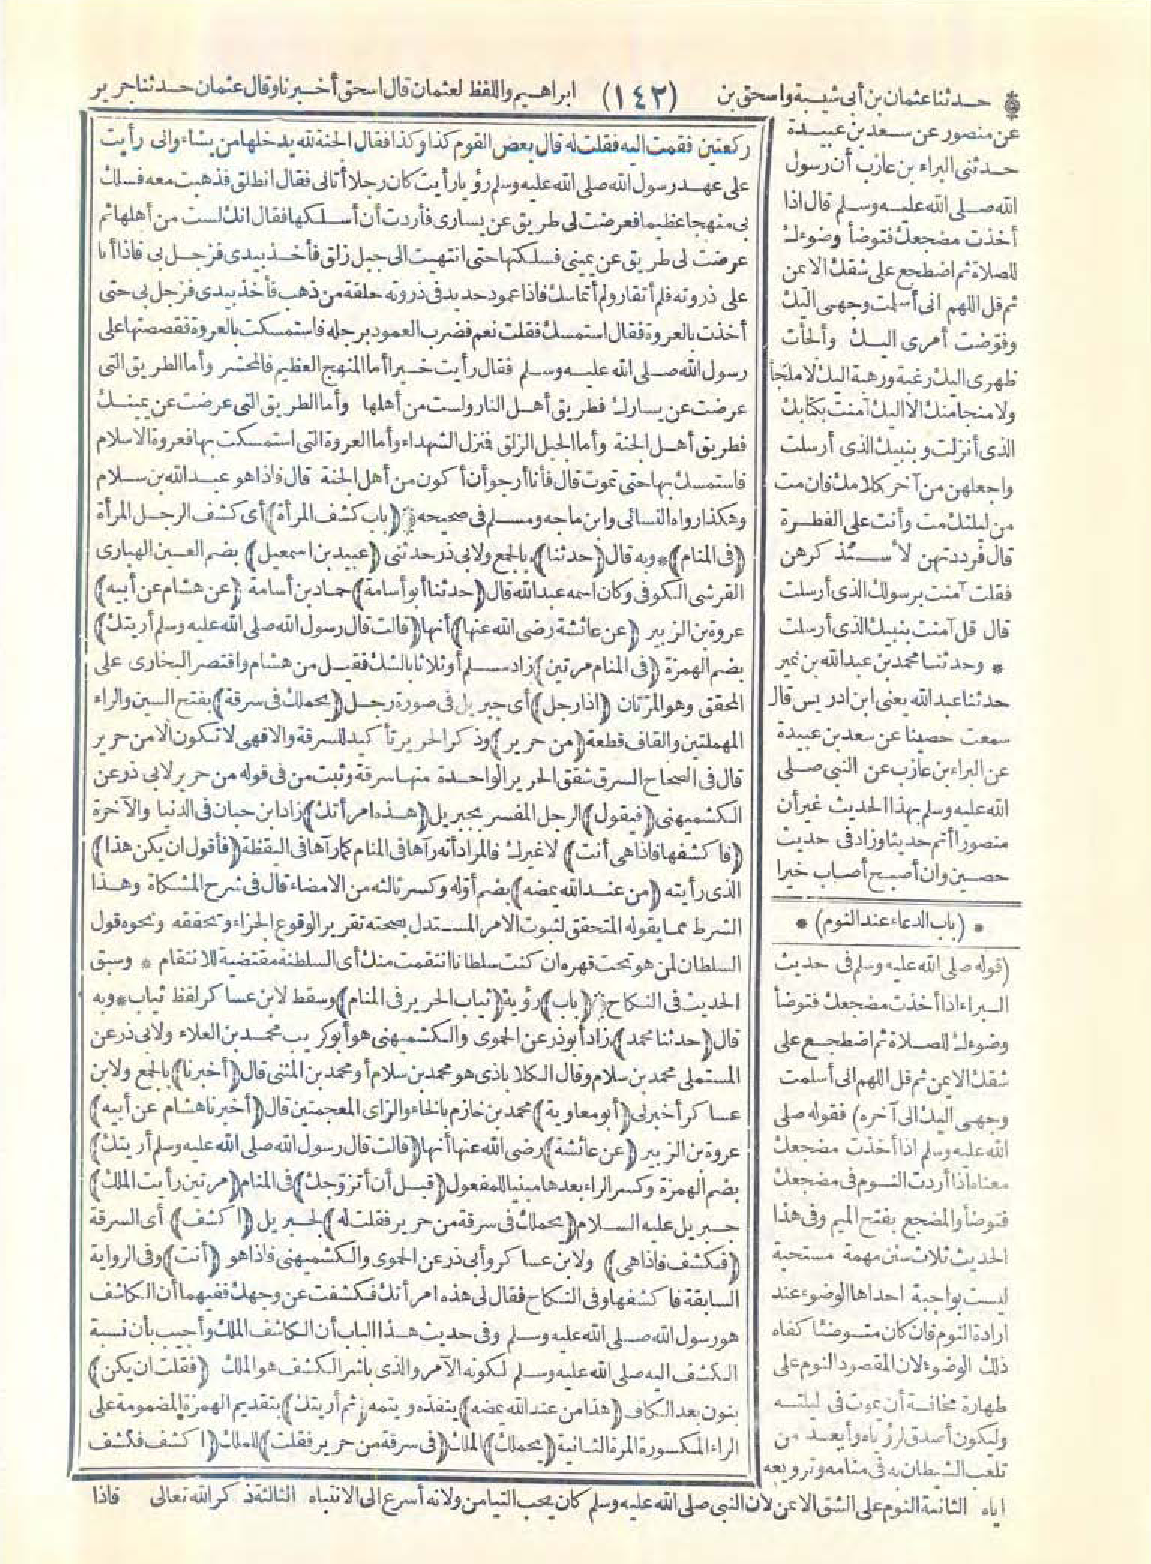 حدثنا عثمان بن أبى شيبة واسحق بن (١٤٢) ابراهيم واللفظ لعثمان قال اسحق أخبرنا وقال عثمان حدثنا جرير
عن منصور عن سعد بن عبيدة
حدثنى البراء بن عازب أن رسول
الله صلى الله عليه وسلم قال اذا
أخذت مضجعك فتوضأ وضوءك
للصلاة ثم اضطجع على شقك الايمن
ثم قل اللهم انى أسلمت وجهى اليك
وفوضت أمرى اليك وألجأت
ظهرى اليك رغبة ورهبة اليك لا ملجأ
ولا منجا منك الا اليك آمنت بكتابك
الذى أنزلت وبنبيك الذى أرسلت
واجعلهن من آخر كلامك فان مت
من ليلتك مت وأنت على الفطرة
قال فرددتهن لأستذكرهن
فقلت آمنت برسولك الذى أرسلت
قال قل آمنت بنبيك الذى أرسلت
* وحدثنا محمد بن عبدالله بن نمير
حدثنا عبدالله يعنى ابن ادريس قال
سمعت حصينا عن سعد بن عبيدة
عن البراء بن عازب عن النبى صلى
الله عليه وسلم بهذا الحديث غير أن
منصورا أتم حديثا وزاد فى حديث
حصين وان أصبح أصاب خيرا
* (باب الدعاء عند النوم) *
(قوله صلى الله عليه وسلم فى حديث
البراء اذا أخذت مضجعك فتوضأ
وضوءك للصلاة ثم اضطجع على
شقك الايمن ثم قل اللهم انى أسلمت
وجهى اليك الى آخره) فقوله صلى
الله عليه وسلم اذا أخذت مضجعك
معناه اذا أردت النوم فى مضجعك
فتوضأ والمضجع بفتح الميم وفى هذا
الحديث ثلاث سنن مهمة مستحبة
ليست بواجبة احداها الوضوء عند
ارادة النوم فان كان متوضئا كفاه
ذلك الوضوء لان المقصود النوم على
طهارة مخافة أن يموت فى ليلته
وليكون أصدق لرؤياه وأبعد من
تلعب الشيطان به فى منامه وترويعه
اياه الثانية النوم على الشق الايمن لأن النبى صلى الله عليه وسلم كان يحب التيامن ولانه أسرع الى الانتباه الثالثة ذكر الله تعالى فاذا
ركعتين فقمت اليه فقلت له قال بعض القوم كذا وكذا فقال الجنة لله يدخلها من يشاء وانى رأيت
على عهد رسول الله صلى الله عليه وسلم رؤيا رأيت كان رجلا أتانى فقال انطلق فذهبت معه فسلك
بى منهجا عظيما فعرضت لى طريق عن يسارى فأردت أن أسلكها فقال انك لست من أهلها ثم
عرضت لى طريق عن يمينى فسلكتها حتى انتهيت الى جبل زلق فأخذ بيدى فزجل بى فاذا أنا
على ذروته فلم أتقار ولم أتماسك فاذا عمود حديد فى ذروته حلقة من ذهب فأخذ بيدى فزجل بى حتى
أخذت بالعروة فقال استمسك فقلت نعم فضرب العمود برجله فاستمسكت بالعروة فقصصتها على
رسول الله صلى الله عليه وسلم فقال رأيت خيرا أما المنهج العظيم فالمحشر وأما الطريق التى
عرضت عن يسارك فطريق أهل النار ولست من أهلها وأما الطريق التى عرضت عن يمينك
فطريق أهل الجنة وأما الجبل الزلق فنزل الشهداء وأما العروة التى استمسكت بها فعروة الاسلام
فاستمسك بها حتى تموت قال فأنا أرجو أن أكون من أهل الجنة قال فاذا هو عبدالله بن سلام
وهكذا رواه النسائى وابن ماجه ومسلم فى صحيحه ۞ (باب كشف المرأة) أى كشف الرجل المرأة
(فى المنام) * وبه قال (حدثنا) بالجمع ولابى ذر حدثنى (عبيد بن اسمعيل) بضم العين الهبارى
القرشى الكوفى وكان اسمه عبدالله قال (حدثنا أبو أسامة) حماد بن أسامة (عن هشام عن أبيه)
عروة بن الزبير (عن عائشة رضى الله عنها) أنها (قالت قال رسول الله صلى الله عليه وسلم أريتك)
بضم الهمزة (فى المنام مرتين) زاد مسلم أو ثلاثا بالشك فقيل من هشام واقتصر البخارى على
المحقق وهو المرّتان (اذا رجل) أى جبريل فى صورة رجل (يحملك فى سرقة) بفتح السين والراء
المهملتين والقاف قطعة (من حرير) وذكر الحرير تأكيد للسرقة والا فهى لا تكون الا من حرير
قال فى الصحاح السرق شقق الحرير الواحدة منها سرقة وثبت من فى قوله من حرير لابى ذر عن
الكشميهنى (فيقول) الرجل المفسر بجبريل (هذه امرأتك) زاد ابن حبان فى الدنيا والآخرة
(فاكشفها فاذا هى أنت) لا غيرك فالمراد أنه رآها فى المنام كما رآها فى اليقظة (فأقول ان يكن هذا)
الذى رأيته (من عند الله يمضه) بضم أوّله وكسر ثالثه من الامضاء قال فى شرح المشكاة وهذا
الشرط مما يقوله المتحقق لثبوت الامر المستدل بصحته تقريرا لوقوع الجزاء وتحققه ونحوه قول
السلطان لمن هو تحت قهره ان كنت سلطانا انتقمت منك أى السلطنة مقتضية للانتقام * وسبق
الحديث فى النكاح ۞ (باب) رؤية (ثياب الحرير فى المنام) وسقط لابن عساكر لفظ ثياب * وبه
قال (حدثنا محمد) زاد أبو ذر عن الحموى والكشميهنى هو أبو كريب محمد بن العلاء ولابى ذر عن
المستملى محمد بن سلام وقال الكلاباذى هو محمد بن سلام أو محمد بن المثنى قال (أخبرنا) بالجمع ولابن
عساكر أخبرنى (أبو معاوية) محمد بن خازم بالخاء والزاى المعجمتين قال (أخبرنا هشام عن أبيه)
عروة بن الزبير (عن عائشة) رضى الله عنها أنها (قالت قال رسول الله صلى الله عليه وسلم أريتك)
بضم الهمزة وكسر الراء بعدها مبنيا للمفعول (قبل أن أتزوّجك) فى المنام (مرتين رأيت الملك)
جبريل عليه السلام (يحملك فى سرقة من حرير فقلت له) لجبريل (اكشف) أى السرقة
(فكشف فاذا هى) ولابن عساكر وأبى ذر عن الحموى والكشميهنى فاذا هو (أنت) وفى الرواية
السابقة فاكشفها وفى النكاح فقال لى هذه امرأتك فكشفت عن وجهك ففيهما أن الكاشف
هو رسول الله صلى الله عليه وسلم وفى حديث هذا الباب أن الكاشف الملك وأجيب بأن نسبة
الكشف اليه صلى الله عليه وسلم لكونه الآمر والذى باشر الكشف هو الملك (فقلت ان يكن)
بنون بعد الكاف (هذا من عند الله يمضه) ينفذه ويتمه (ثم أريتك) بتقديم الهمزة المضمومة على
الراء المكسورة المرة الثانية (يحملك) الملك (فى سرقة من حرير فقلت) للملك (اكشف فكشف